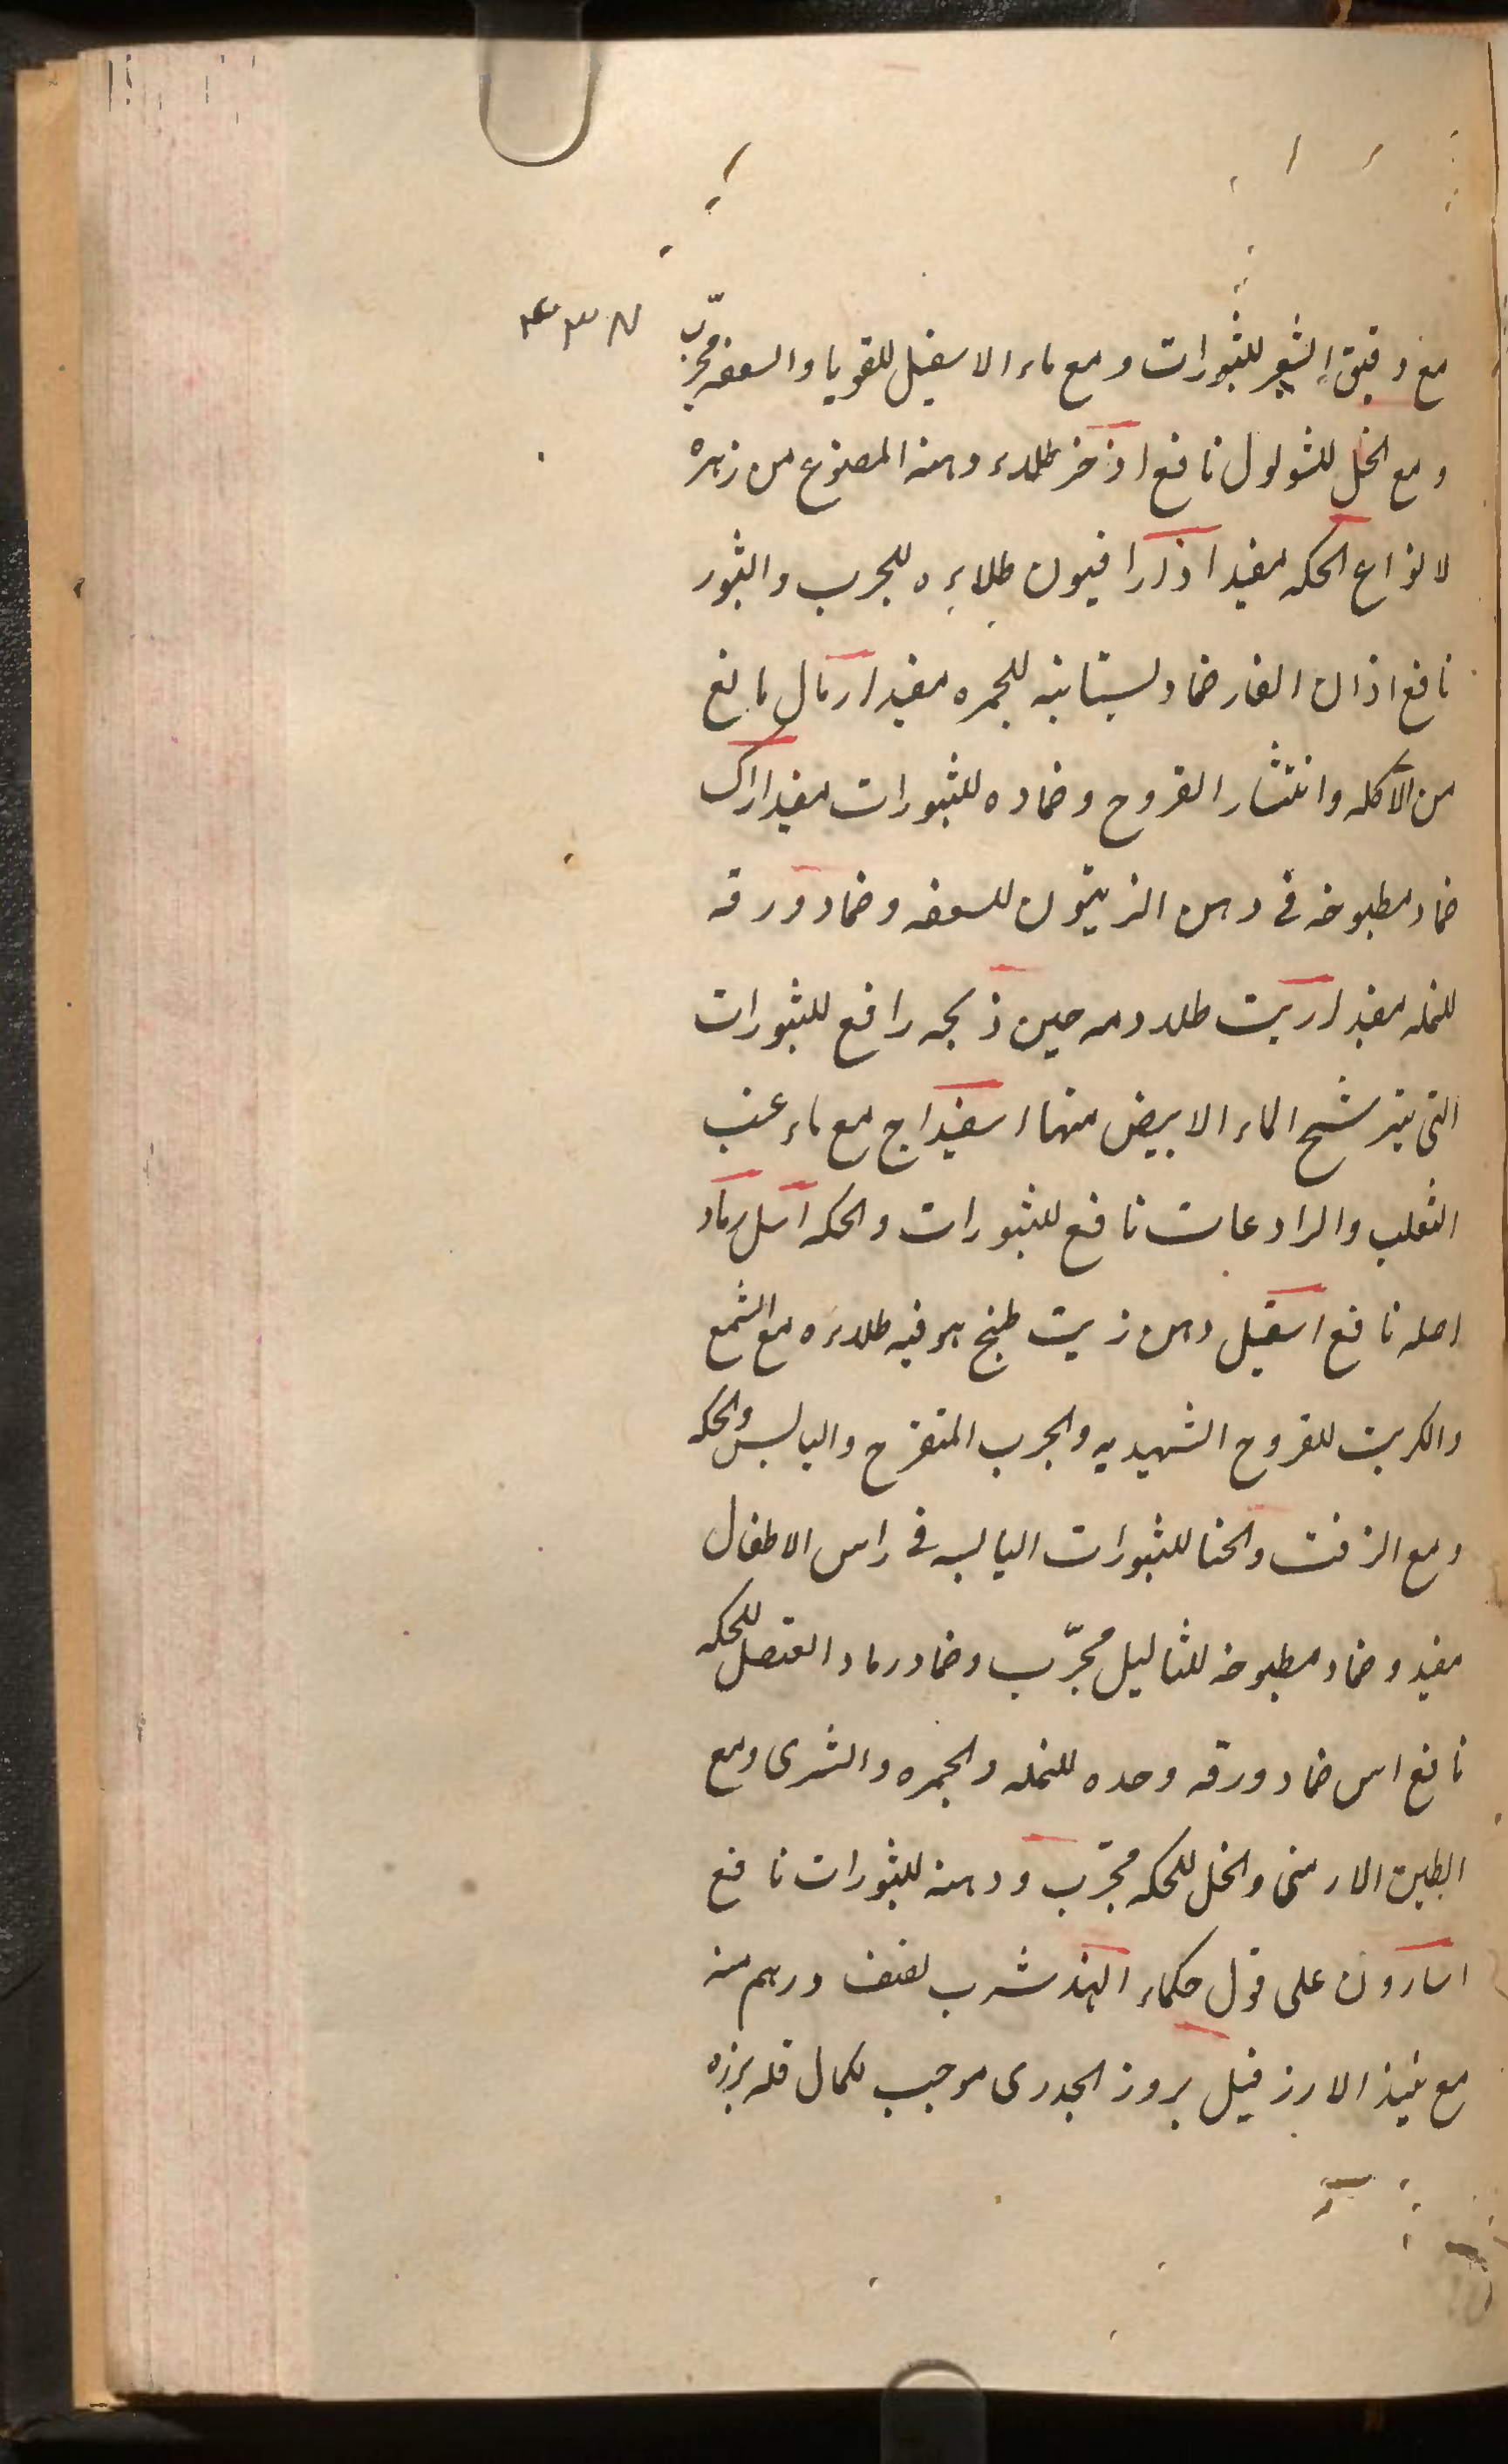 مع دقيق الشعير للثبورات ومع ماء الاسقيل للقوبا والسعفه مجرّب
ومع الخل للثولول نافع اذخر طلاء دهنه المصنوع من زهره
لانواع الحكه مفيد اذاراقيون طلاءه للجرب والثبور
نافع اذان الفار ضماد بستانيه للجمره مفيد ارمال مانع
من الآكله وانتشار القروح وضماده للثبورات مفيد اراك
ضماد مطبوخه فى دهن الزيتون للسعفه وضماد ورقه
للنمله مفيد ارنب طلاء دمه حين ذبحه رافع للثبورات
التى يترشح الماء الابيض منها اسفيداج مع ماء عنب
الثعلب والرادعات نافع للثبورات والحكه اسل رماد
اصله نافع اسقيل دهن زيت طبخ هو فيه طلاءه مع الشمع
والكبريت للقروح الشهيديه والجرب المتقرح واليابس والحكه
ومع الزفت والحنا للثبورات اليابسه فى راس الاطفال
مفيد وضماد مطبوخه للثاليل مجرّب وضماد رماد العنصل للحكه
نافع اس ضماد ورقه وحده للنمله والجمره والشرى ومع
الطين الارمنى والخل للحكه مجرّب ودهنه للثبورات نافع
اسارون على قول حكماء الهند شرب نصف درهم منه
مع نبيذ الارز قبل بروز الجدرى موجب لكمال قله بروزه